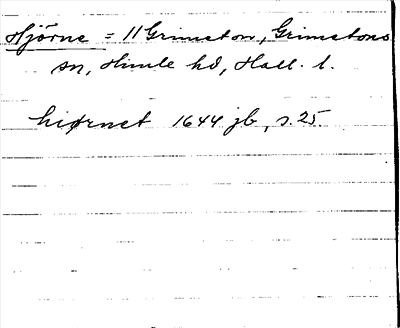 Hjörne = 11 Grimeton, Grimetons
sn, Himle hd, Hall. l.
hiørnet 1644 jb, s. 25